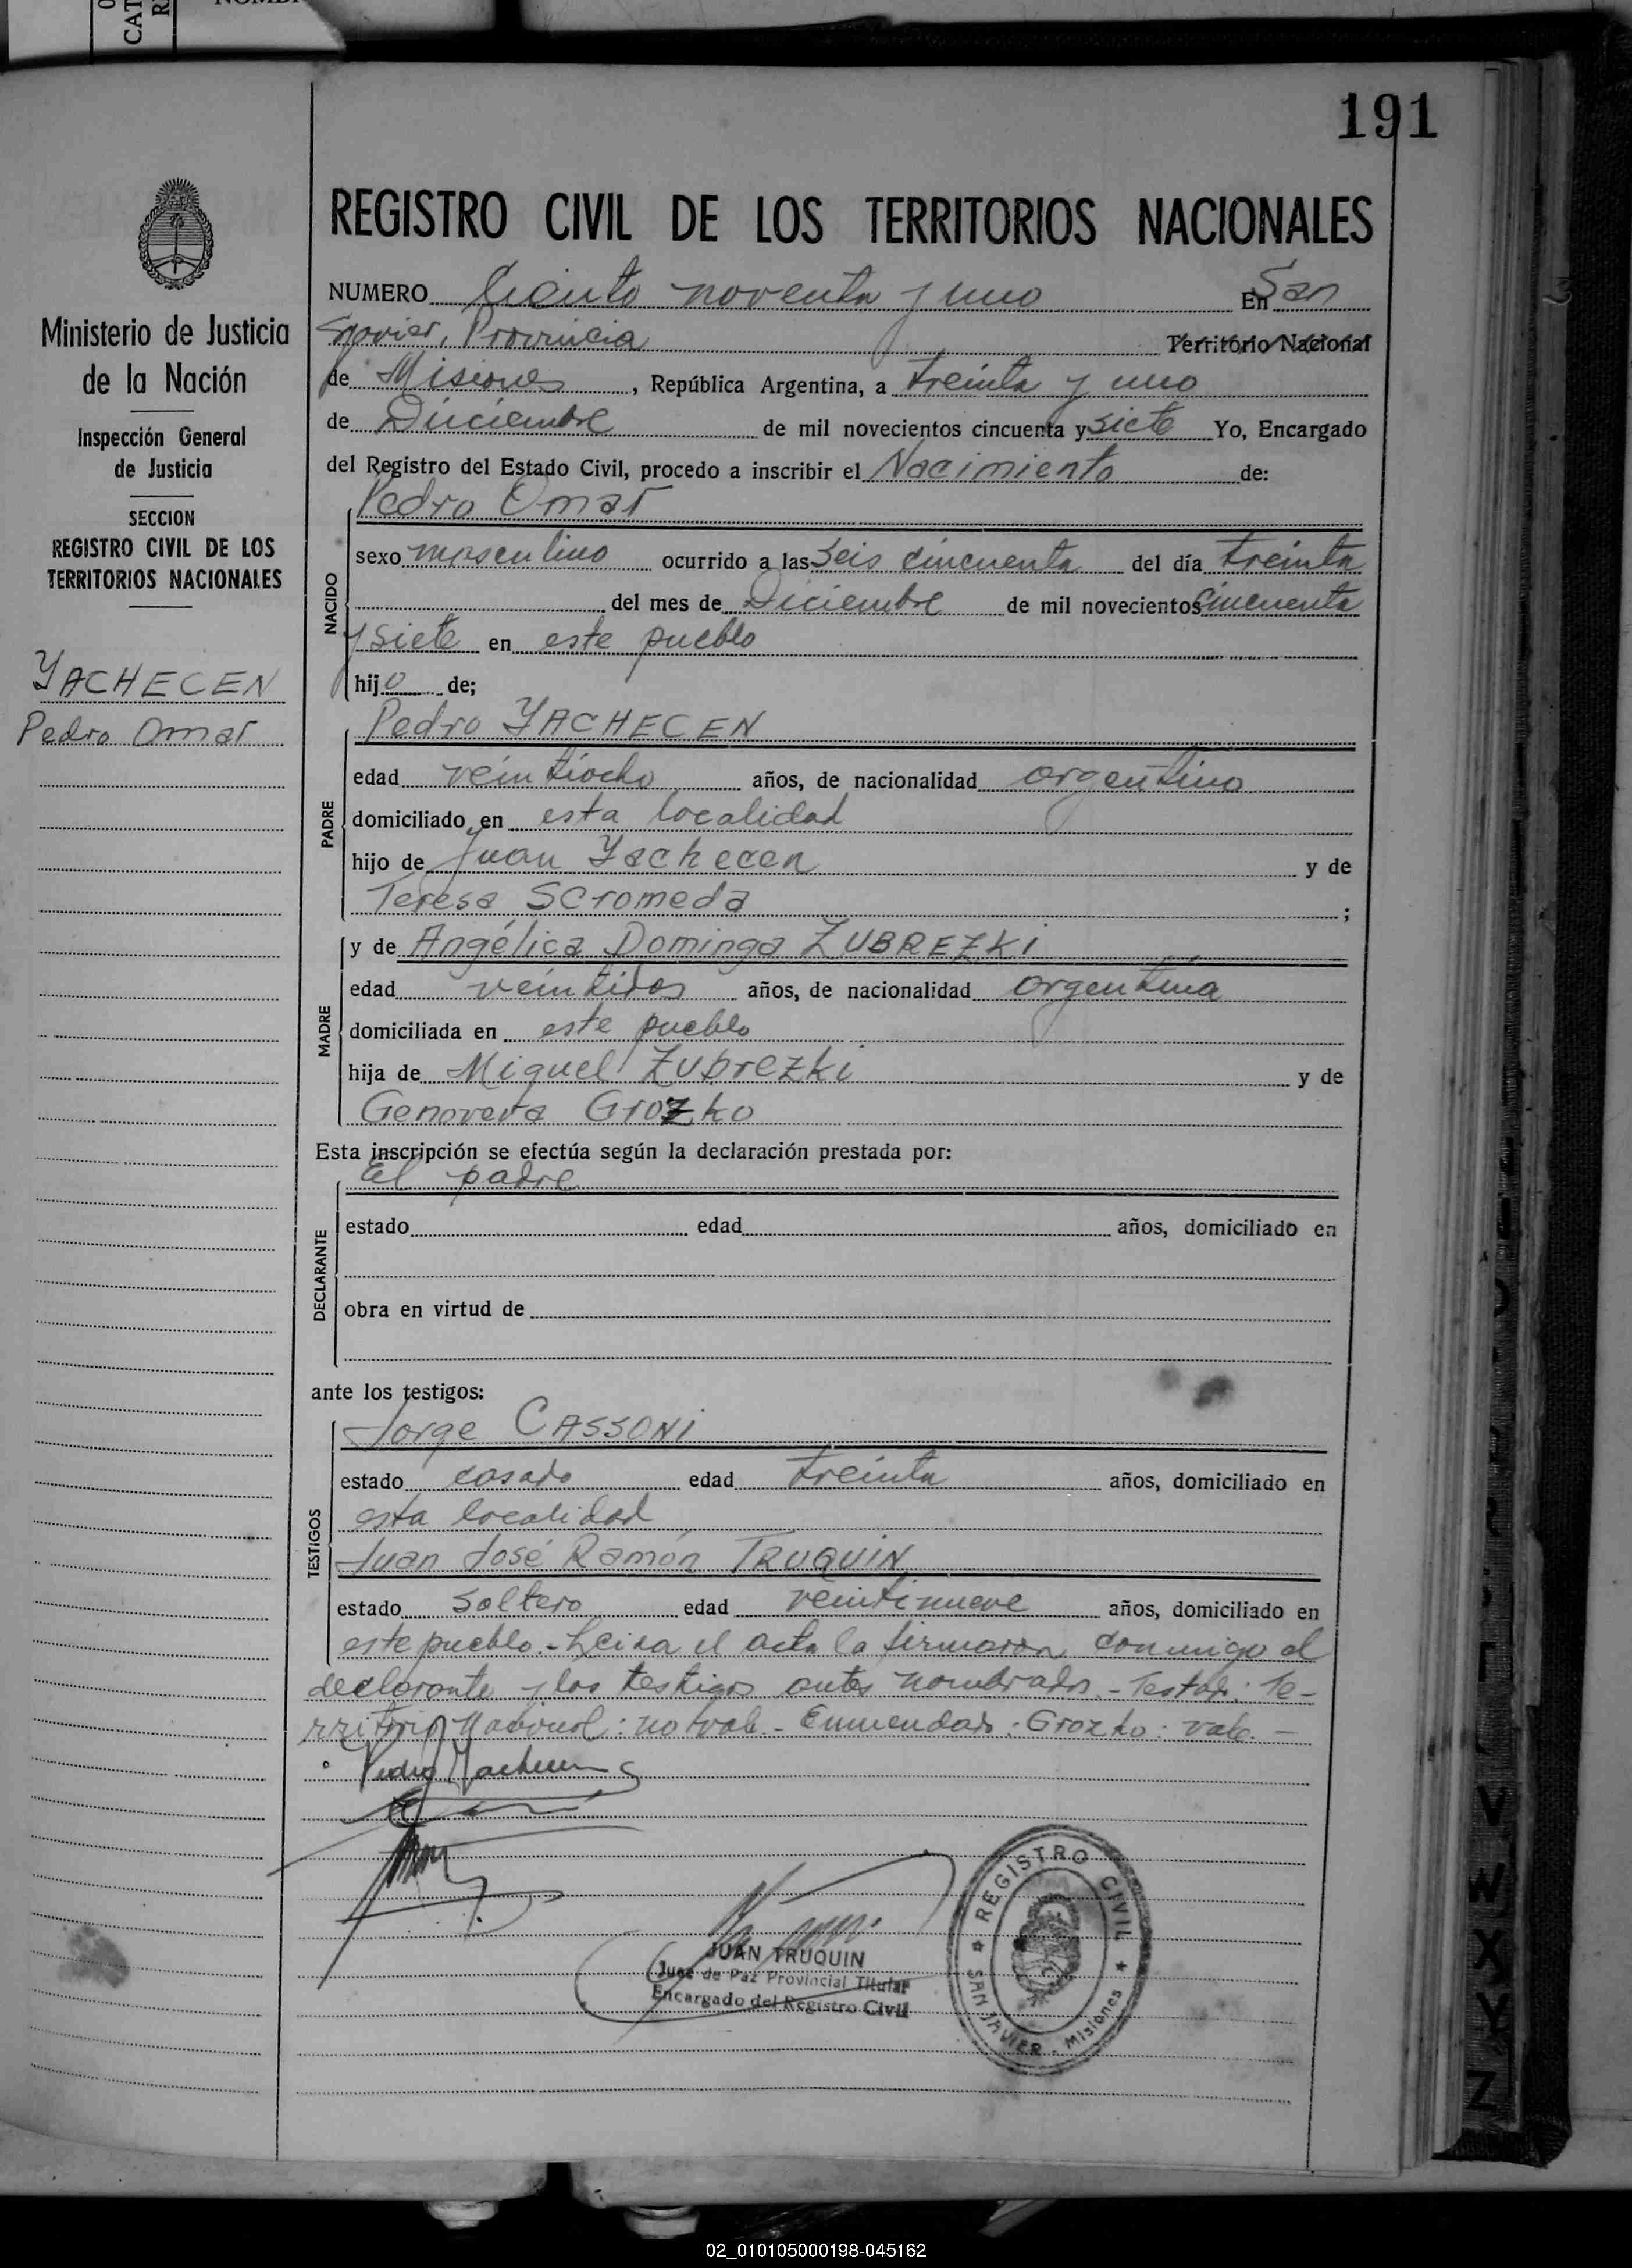 NOMBR
CAT
191
REGISTRO CIVIL DE LOS TERRITORIOS NACIONALES
Ministerio de Justicia
de la Nación
Inspección General
de Justicia
SECCION
REGISTRO CIVIL DE LOS
TERRITORIOS NACIONALES
YACHECEN
Pedro Omar
NUMERO Ciento noventa y uno En San
Javier, Provincia Territorio Nacional
de Misiones, República Argentina, a treinta y uno
de Diciembre de mil novecientos cincuenta y siete Yo, Encargado
del Registro del Estado Civil, procedo a inscribir el Nacimiento de:
NACIDO
Pedro Omar
sexo masculino ocurrido a las Seis cincuenta del día treinta
del mes de Diciembre de mil novecientos cincuenta
y siete en este pueblo
hijo de;
PADRE
Pedro YACHECEN
edad veintiocho años, de nacionalidad argentino
domiciliado en esta localidad
hijo de Juan Yachecen y de
Teresa Scromeda ;
MADRE
y de Angélica Dominga ZUBREZKI
edad veintidos años, de nacionalidad argentina
domiciliada en este pueblo
hija de Miguel Zubrezki y de
Genoveva Grozko
Esta inscripción se efectúa según la declaración prestada por:
DECLARANTE
El padre
estado edad años, domiciliado en
obra en virtud de
ante los testigos:
TESTIGOS
Jorge CASSONI
estado casado edad treinta años, domiciliado en
esta localidad
Juan José Ramón TRUQUIN
estado soltero edad veintinueve años, domiciliado en
este pueblo.- Leida el acta la firmaron conmigo el
declarante y los testigos antes nombrados.- Testado: Te-
rritorio Nacional: no vale - Enmendado: Grozko: vale.-
Pedro Yachecen
JUAN TRUQUIN
Juez de Paz Provincial Titular
Encargado del Registro Civil
REGISTRO CIVIL
SAN JAVIER - Misiones
V
W
X
Y
Z
02_010105000198-045162